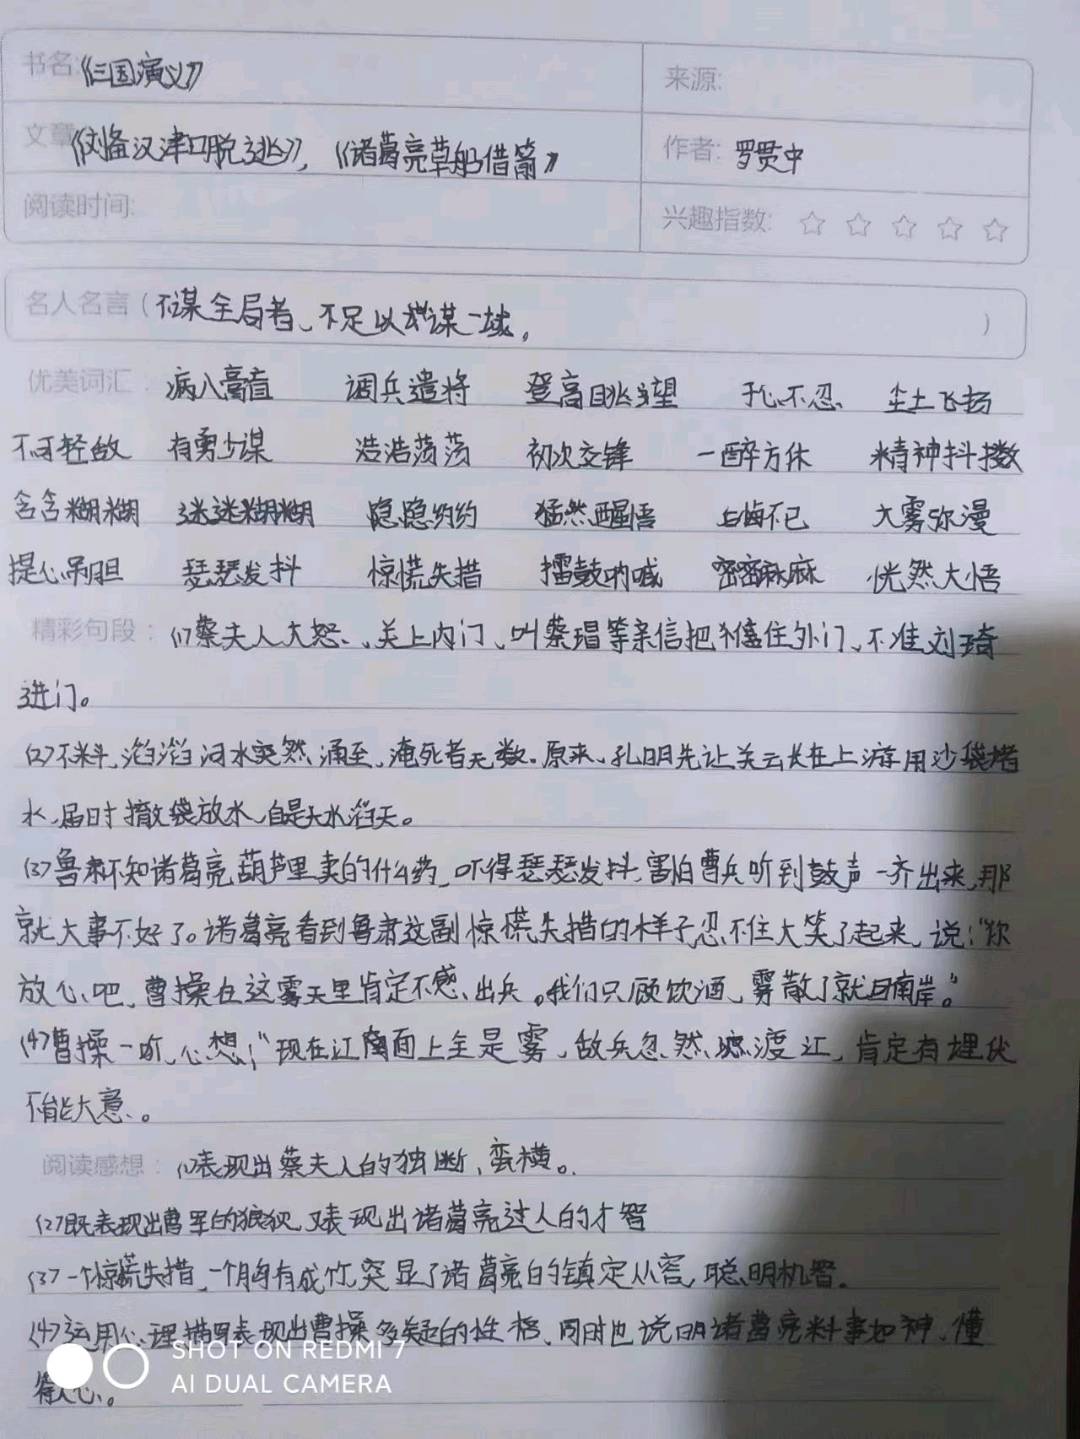 书名:《三国演义》
来源:
文章《刘备汉津口脱逃》,《诸葛亮草船借箭》
作者: 罗贯中
阅读时间:
兴趣指数: ☆ ☆ ☆ ☆ ☆
名人名言(不谋全局者、不足以谋一域。)
优美词汇: 病入膏直 调兵遣将 登高眺望 于心不忍 尘土飞扬
不可轻敌 有勇少谋 浩浩荡荡 初次交锋 一醉方休 精神抖擞
含含糊糊 迷迷糊糊 隐隐约约 猛然醒悟 后悔不已 大雾弥漫
提心吊胆 瑟瑟发抖 惊慌失措 擂鼓呐喊 密密麻麻 恍然大悟
精彩句段: (1)蔡夫人大怒、关上内门、叫蔡瑁等亲信把住外门、不准刘琦
进门。
(2)不料,滔滔河水突然涌至,淹死者无数。原来,孔明先让关云长在上游用沙袋堵
水,届时撤袋放水,自是大水滔天。
(3)鲁肃不知诸葛亮葫芦里卖的什么药,吓得瑟瑟发抖,害怕曹兵听到鼓声一齐出来,那
就大事不好了。诸葛亮看到鲁肃这副惊慌失措的样子忍不住大笑了起来,说:“你
放心吧,曹操在这雾天里肯定不感出兵。我们只顾饮酒、雾散了就回南岸。”
(4)曹操一听,心想:“现在江面上全是雾、敌兵忽然渡江,肯定有埋伏
不能大意、。
阅读感想: (1)表现出蔡夫人的独断、蛮横。
(2)既表现出曹军的狼狈,又表现出诸葛亮过人的才智
(3)一个惊慌失措,一个胸有成竹,突显了诸葛亮的镇定从容,聪明机智.
(4)运用心理描写表现出曹操多疑的性格,同时也说明诸葛亮料事如神、懂
得人心。
SHOT ON REDMI 7
AI DUAL CAMERA